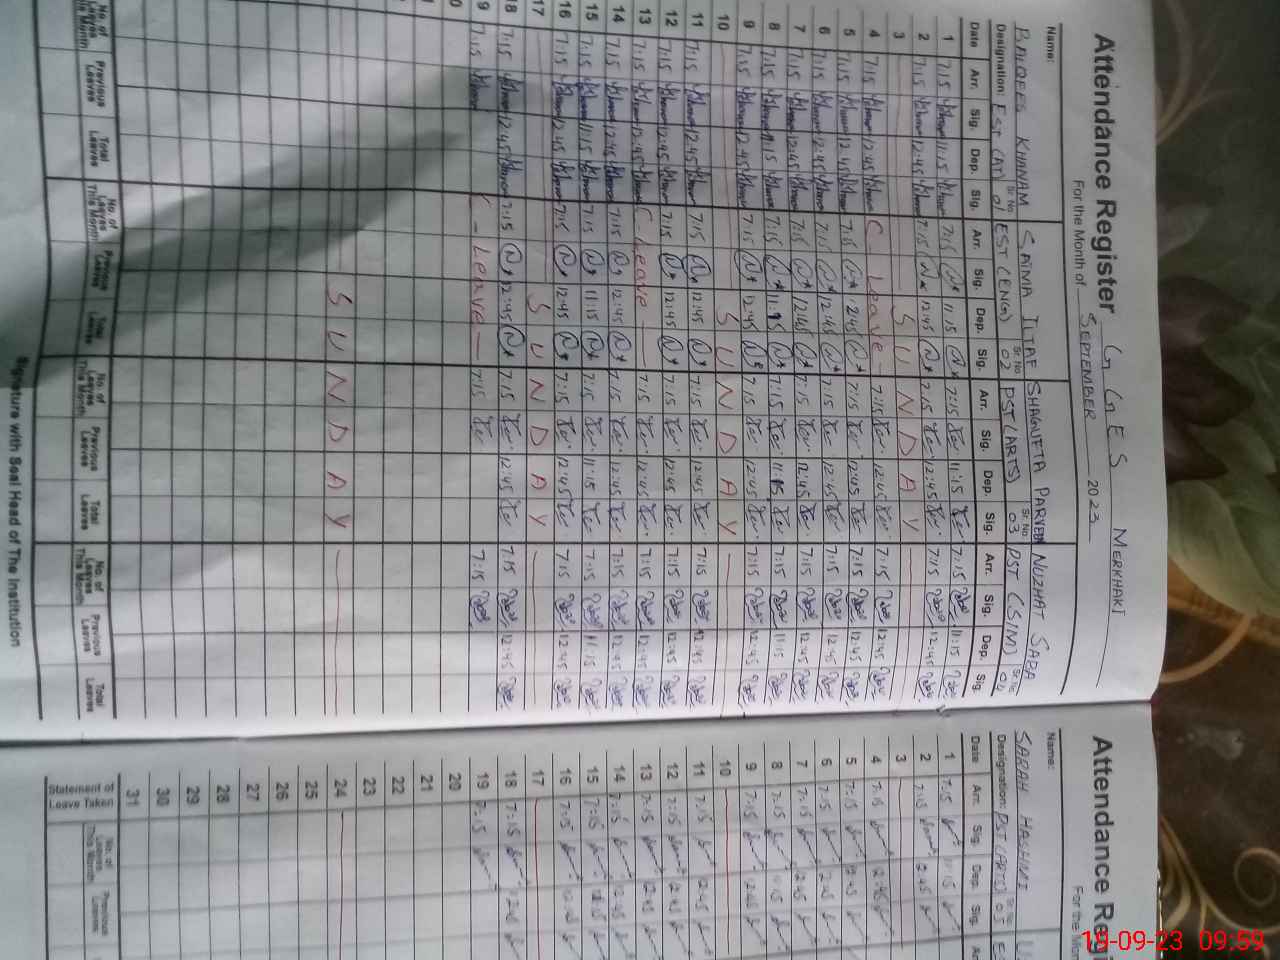 Attendance Register G G E S MERKHAKI
For the Month of SEPTEMBER 2023
Name: BALQEES KHANAM SAIMA ILTAF SHAGUFTA PARVEEN NUZHAT SABA
Designation: EST (AT) Sr. No 01 EST (ENG) Sr. No 02 PST (ARTS) Sr. No 03 PST (S/M) Sr. No 04
Date Arr. Sig. Dep. Sig. Arr. Sig. Dep. Sig. Arr. Sig. Dep. Sig. Arr. Sig. Dep. Sig.
1 7:15 11:15 7:15 11:15 7:15 11:15 7:15 11:15
2 7:15 12:45 7:15 12:45 7:15 12:45 7:15 12:45
3 S U N D A Y
4 7:15 12:45 C Leave 7:15 12:45 7:15 12:45
5 7:15 12:45 7:15 12:45 7:15 12:45 7:15 12:45
6 7:15 12:45 7:15 12:45 7:15 12:45 7:15 12:45
7 7:15 12:45 7:15 12:45 7:15 12:45 7:15 12:45
8 7:15 11:15 7:15 11:15 7:15 11:15 7:15 11:15
9 7:15 12:45 7:15 12:45 7:15 12:45 7:15 12:45
10 S U N D A Y
11 7:15 12:45 7:15 12:45 7:15 12:45 7:15 12:45
12 7:15 12:45 7:15 12:45 7:15 12:45 7:15 12:45
13 7:15 12:45 C-Leave 7:15 12:45 7:15 12:45
14 7:15 12:45 7:15 12:45 7:15 12:45 7:15 12:45
15 7:15 11:15 7:15 11:15 7:15 11:15 7:15 11:15
16 7:15 12:45 7:15 12:45 7:15 12:45 7:15 12:45
17 S U N D A Y
18 7:15 12:45 7:15 12:45 7:15 12:45 7:15 12:45
19 7:15 C-Leave 7:15 7:15
S U N D A Y
No. of Leaves This Month Previous Leaves Total Leaves No. of Leaves This Month Previous Leaves Total Leaves No. of Leaves This Month Previous Leaves Total Leaves No. of Leaves This Month Previous Leaves Total Leaves
Signature with Seal Head of The Institution
Attendance Regi
For the Mon
Name: SARAH HASHMI
Designation: PST (ARTS) Sr. No 05
Date Arr. Sig. Dep. Sig.
1 7:15 11:15
2 7:15 12:45
3
4 7:15 12:45
5 7:15 12:45
6 7:15 12:45
7 7:15 12:45
8 7:15 11:15
9 7:15 12:45
10
11 7:15 12:45
12 7:15 12:45
13 7:15 12:45
14 7:15 12:45
15 7:15 11:15
16 7:15 12:45
17
18 7:15 12:45
19 7:15
20
21
22
23
24
25
26
27
28
29
30
31
Statement of Leave Taken No. of Leaves This Month Previous Leaves
19-09-23 09:59